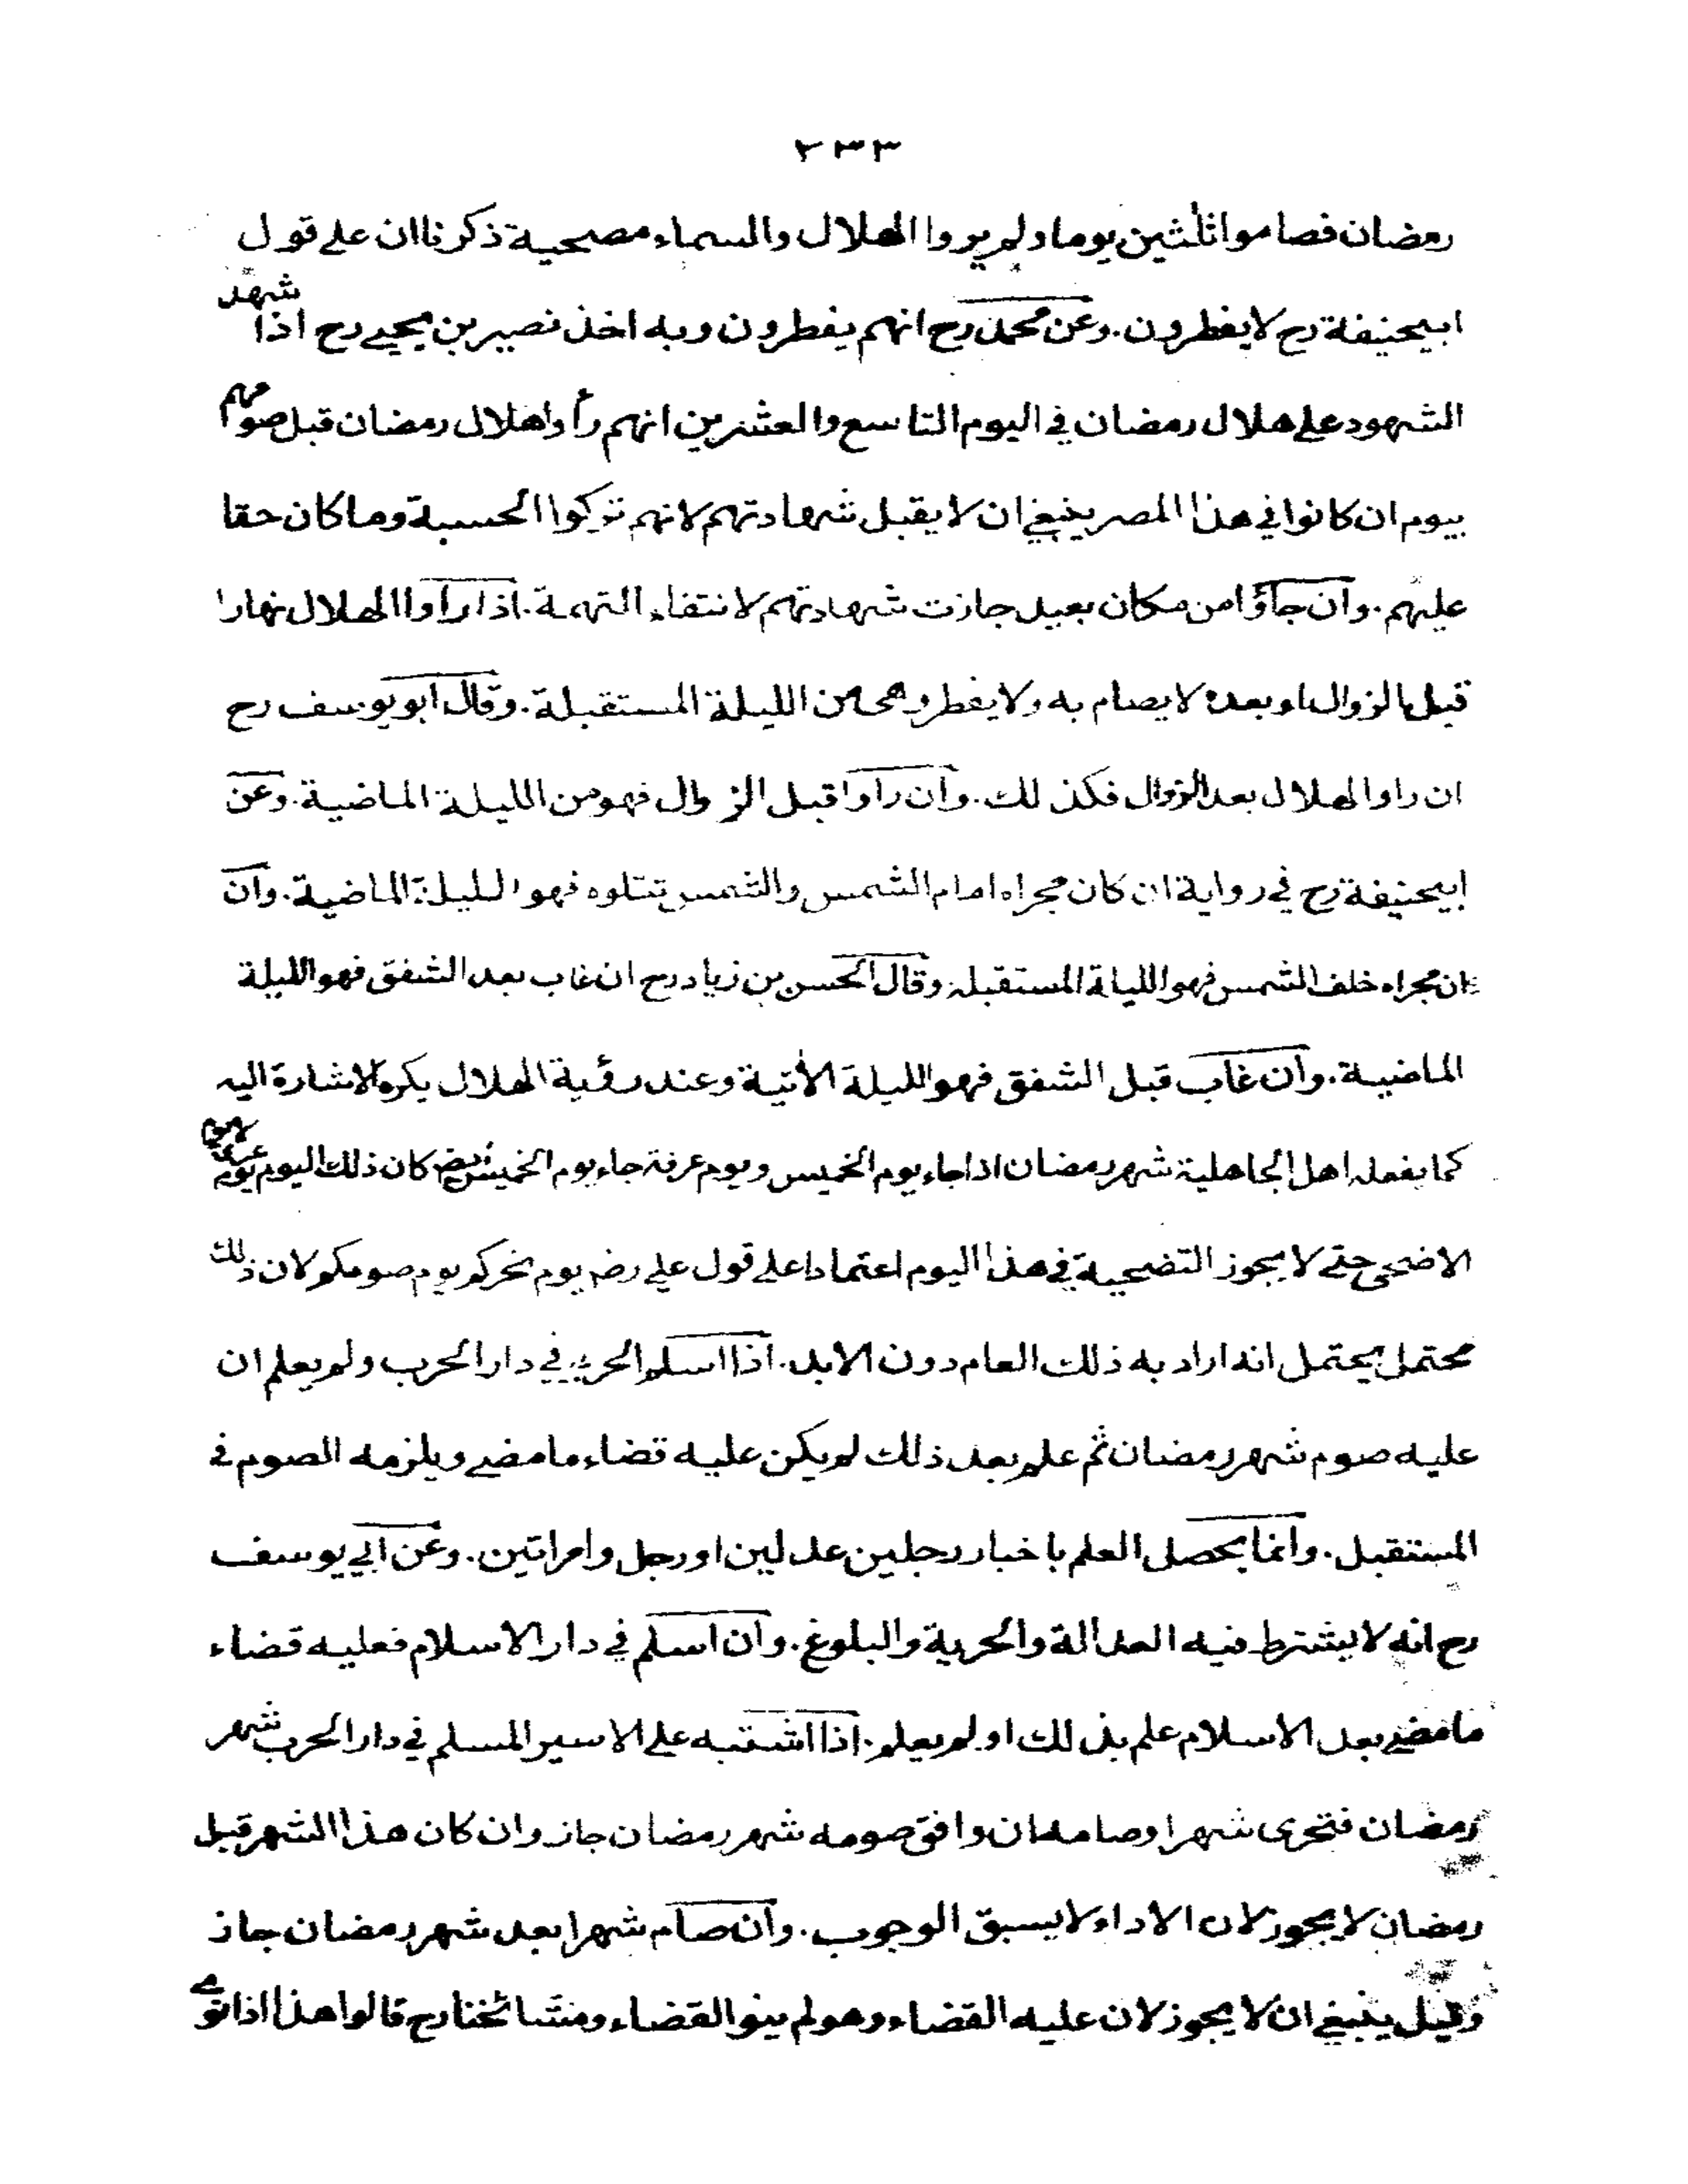 ٢٣٣
رمضان فصاموا ثلثين يوما ولم يروا الهلال والسماء مصحية ذكرنا ان على قول
ابيحنيفة رح لا يفطرون. وعن محمد رح انهم يفطرون وبه اخذ نصير بن يحيى رح اذا شهد
الشهود على هلال رمضان في اليوم التاسع والعشرين انهم رأوا هلال رمضان قبل صومهم
بيوم ان كانوا في هذا المصر ينبغي ان لا يقبل شهادتهم لانهم تركوا الحسبة وما كان حقا
عليهم. وان جاؤا من مكان بعيد جازت شهادتهم لانتفاء التهمة. اذا راوا الهلال نهارا
قبل الزوال او بعده لا يصام به ولا يفطر وهى من الليلة المستقبلة. وقال ابو يوسف رح
ان راوا الهلال بعد الزوال فكذلك. وان راوا قبل الزوال فهو من الليلة الماضية. وعن
ابيحنيفة رح في رواية ان كان مجراه امام الشمس والشمس تتلوه فهو لليلة الماضية. وان
كان مجراه خلف الشمس فهو الليلة المستقبلة وقال الحسن بن زياد رح ان غاب بعد الشفق فهو الليلة
الماضية. وان غاب قبل الشفق فهو الليلة الأتية وعند رؤية الهلال يكره الاشارة اليه
كما يفعله اهل الجاهلية شهر رمضان اذا جاء يوم الخميس ويوم عرفة جاء يوم الخميس ايضا كان ذلك اليوم يوم عرفة لا يوم
الاضحى حتى لا يجوز التضحية في هذا اليوم اعتمادا على قول علي رضـ يوم نحركم يوم صومكم لان ذلك
محتمل يحتمل انه اراد به ذلك العام دون الابد. اذا اسلم الحربي في دار الحرب ولم يعلم ان
عليه صوم شهر رمضان ثم علم بعد ذلك لم يكن عليه قضاء ما مضى ويلزمه الصوم في
المستقبل. وانما يحصل العلم باخبار رجلين عدلين او رجل وامراتين. وعن ابي يوسف
رح انه لا يشترط فيه العدالة والحرية والبلوغ. وان اسلم في دار الاسلام فعليه قضاء
ما مضى بعد الاسلام علم بذلك او لم يعلم. اذا اشتبه على الاسير المسلم في دار الحرب شهر
رمضان فتحرى شهرا وصامه ان وافق صومه شهر رمضان جاز وان كان هذا الشهر قبل
رمضان لا يجوز لان الاداء لا يسبق الوجوب. وان صام شهرا بعد شهر رمضان جاز
وقيل ينبغي ان لا يجوز لان عليه القضاء وهو لم ينو القضاء ومشائخنا رح قالوا هذا اذا نوى